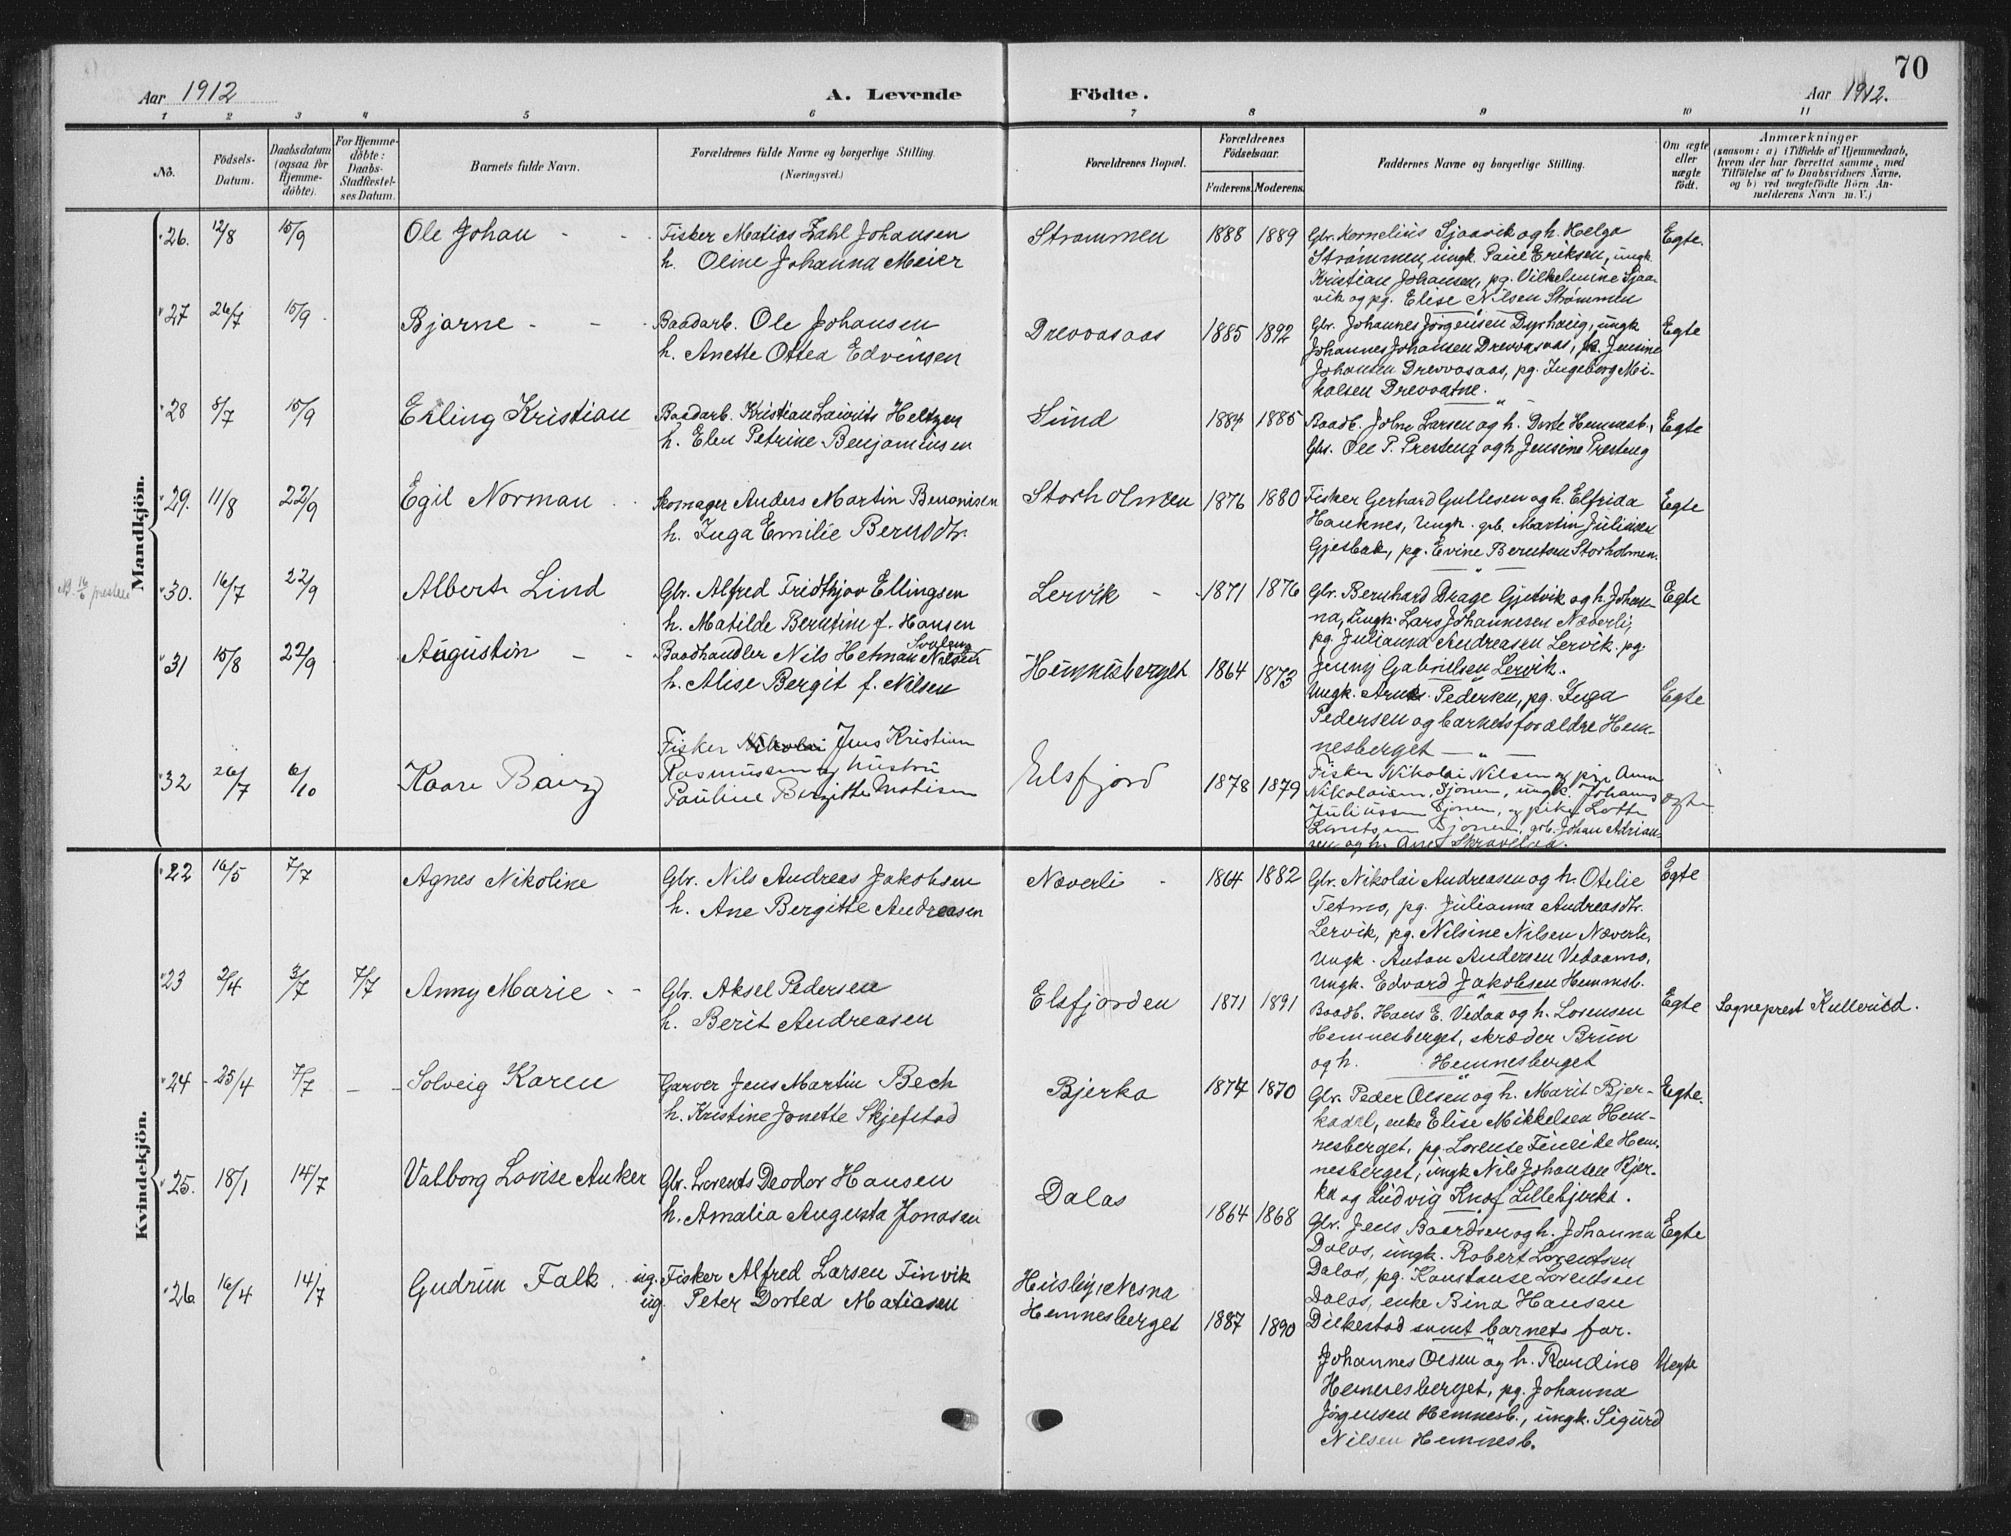 70
Aar 1912
A. Levende Födte.
Aar 1912.
1 2 3 4 5 6 7 8 9 10 11
No.
Födsels-Datum.
Daabsdatum (ogsaa for Hjemme-döbte).
For Hjemme-döbte: Daabs-Stadfæstel-ses Datum.
Barnets fulde Navn.
Forældrenes fulde Navne og borgerlige Stilling.
(Næringsvei.)
Forældrenes Bopæl.
Forældrenes Födselsaar.
Faderens. Moderens.
Faddernes Navne og borgerlige Stilling.
Om ægte eller uægte födt.
Anmærkninger
(saasom: a) i Tilfælde af Hjemmedaab,
hvem der har forrettet samme, med
Tilföielse af to Daabsvidners Navne,
og b) ved uægtefödte Börn An-
melderens Navn m. V.)
Mandkjön.
26. 12/8 15/9 Ole Johan - - Fisker Matias Zahl Johansen
h. Oline Johanna Meier
Strømmen 1888 1889 Gbr. Kornelius Sjaavik og h. Helga
Strømmen, ungk. Paul Eriksen, ungk.
Kristian Johansen, pg. Vilhelmine Sjaa-
vik og pg. Elise Nilsen Strømmen
Egte.
27 26/7 15/9 Bjarne - - Baadarb. Ole Johansen
h. Anette Ottea Edvinsen
Drevvasaas 1885 1892 Gbr. Johannes Jørgensen Dyrhaug, ungk
Johannes Johansen Drevvasaas, pg. Jensine
Johansen Drevvasaas, pg. Ingeborg Mi-
kalsen Drevvatne.
Egte
28 8/7 15/9 Erling Kristian Baadarb. Kristian Laurits Heltzen
h. Elen Petrine Benjaminsen
Sund 1884 1885 Baadb. John Larsen og h. Dorte Hemnesb.,
Gbr. Ole P. Presteng og h. Jensine Presteng
Egte
29. 11/8 22/9 Egil Norman Skomager Anders Martin Benonisen
h. Inga Emilie Berntdtr.
Storholmen 1876 1880 Fisker Gerhard Gullesen og h. Elfrida
Hauknes, Ungk. grb. Martin Juliusen
Gjesbak, pg. Evine Berntsen Storholmen.
Egte
30. 16/7 22/9 Albert Lind Gbr. Alfred Fridthjov Ellingsen
h. Matilde Berntine f. Hansen
Lervik - 1871 1876 Gbr. Bernhard Drage Gjesvik og h. Johan-
na, Ungk. Lars Johannesen Næverli,
pg. Julianna Andreasen Lervik. pg.
Jenny Gabrielsen Lervik.
Egte
31 15/8 22/9 Augustin - - Baadhandler Nils Hetman Nilsen
h. Alise Bergit f. Nilsen
Hemnesberget 1864 1873
Ungk. Arne Pedersen, pg. Inga
Pedersen og barnets forældre Hem-
nesberget
Egte
32 26/7 6/10 Kaare Bang Fisker Jens Kristian
Rasmussen og hustru
Pauline Birgitte Matisen
Elsfjord 1878 1879 Fisker Nikolai Nilsen og pike Anna
Nikolaisen, Sjonen, ungk. Johans
Juliussen Sjonen, og pike Lotte
Lentsen Sjonen, grb. Johan Adrian-
sen og h. Ane Skravelaa.
ægte
Kvindekjön.
22 16/5 7/7 Agnes Nikoline Gbr. Nils Andreas Jakobsen
h. Ane Bergitte Andreasen
Næverli - 1864 1882 Gbr. Nikolai Andreasen og h. Otelie
Tetmo, pg. Julianna Andreasdtr.
Lervik, pg. Nilsine Nilsen Næverli,
Ungk. Anton Andersen Vedaamo,
Ungk. Edvard Jakobsen Hemnesb.
Egte
23 2/4 3/7 7/7 Anny Marie - - Gbr. Aksel Pedersen
h. Berit Andreasen
Elsfjorden 1871 1891 Baadb. Hans E. Vedaa og h. Lorensen
Hemnesberget, skræder Brun
og h. Hemnesberget
Egte Sogneprest Kullerud.
24 25/4 7/7 - - Solveig Karen Garver Jens Martin Bech
h. Kristine Jonette Skjefstad
Bjerka 1874 1870 Gbr. Peder Olsen og h. Marit Bjer-
kadal, enke Elise Mikkelsen Hem-
nesberget, pg. Lorense Feineike Hem-
nesberget, ungk Nils Johansen Bjer-
ka og Ludvig Knof Lillebjerka.
Egte.
25. 18/1 14/7 Valborg Lovise Anker Gbr. Lorents Deodor Hansen
h. Amalia Augusta Jonasen
Dalas 1864 1868 Gbr. Jens Baardsen og h. Johanna
Dalas, ungk. Robert Lorentsen
Dalas, pg. Konstanse Lorentsen
Dalas, enke Bina Hansen
Dilkestad samt barnets far.
Egte
26 16/4 14/7 Gudrun Falk ug. Fisker Alfred Larsen Finvik
ug. Peter Dortea Matiasen
Husby, Nesna
Hemnesberget 1887 1890
Johannes Olsen og h. Randine
Hemnesberget, pg. Johanna
Jørgensen Hemnesb., ungk. Sigurd
Nilsen Hemnesb.
Uegte